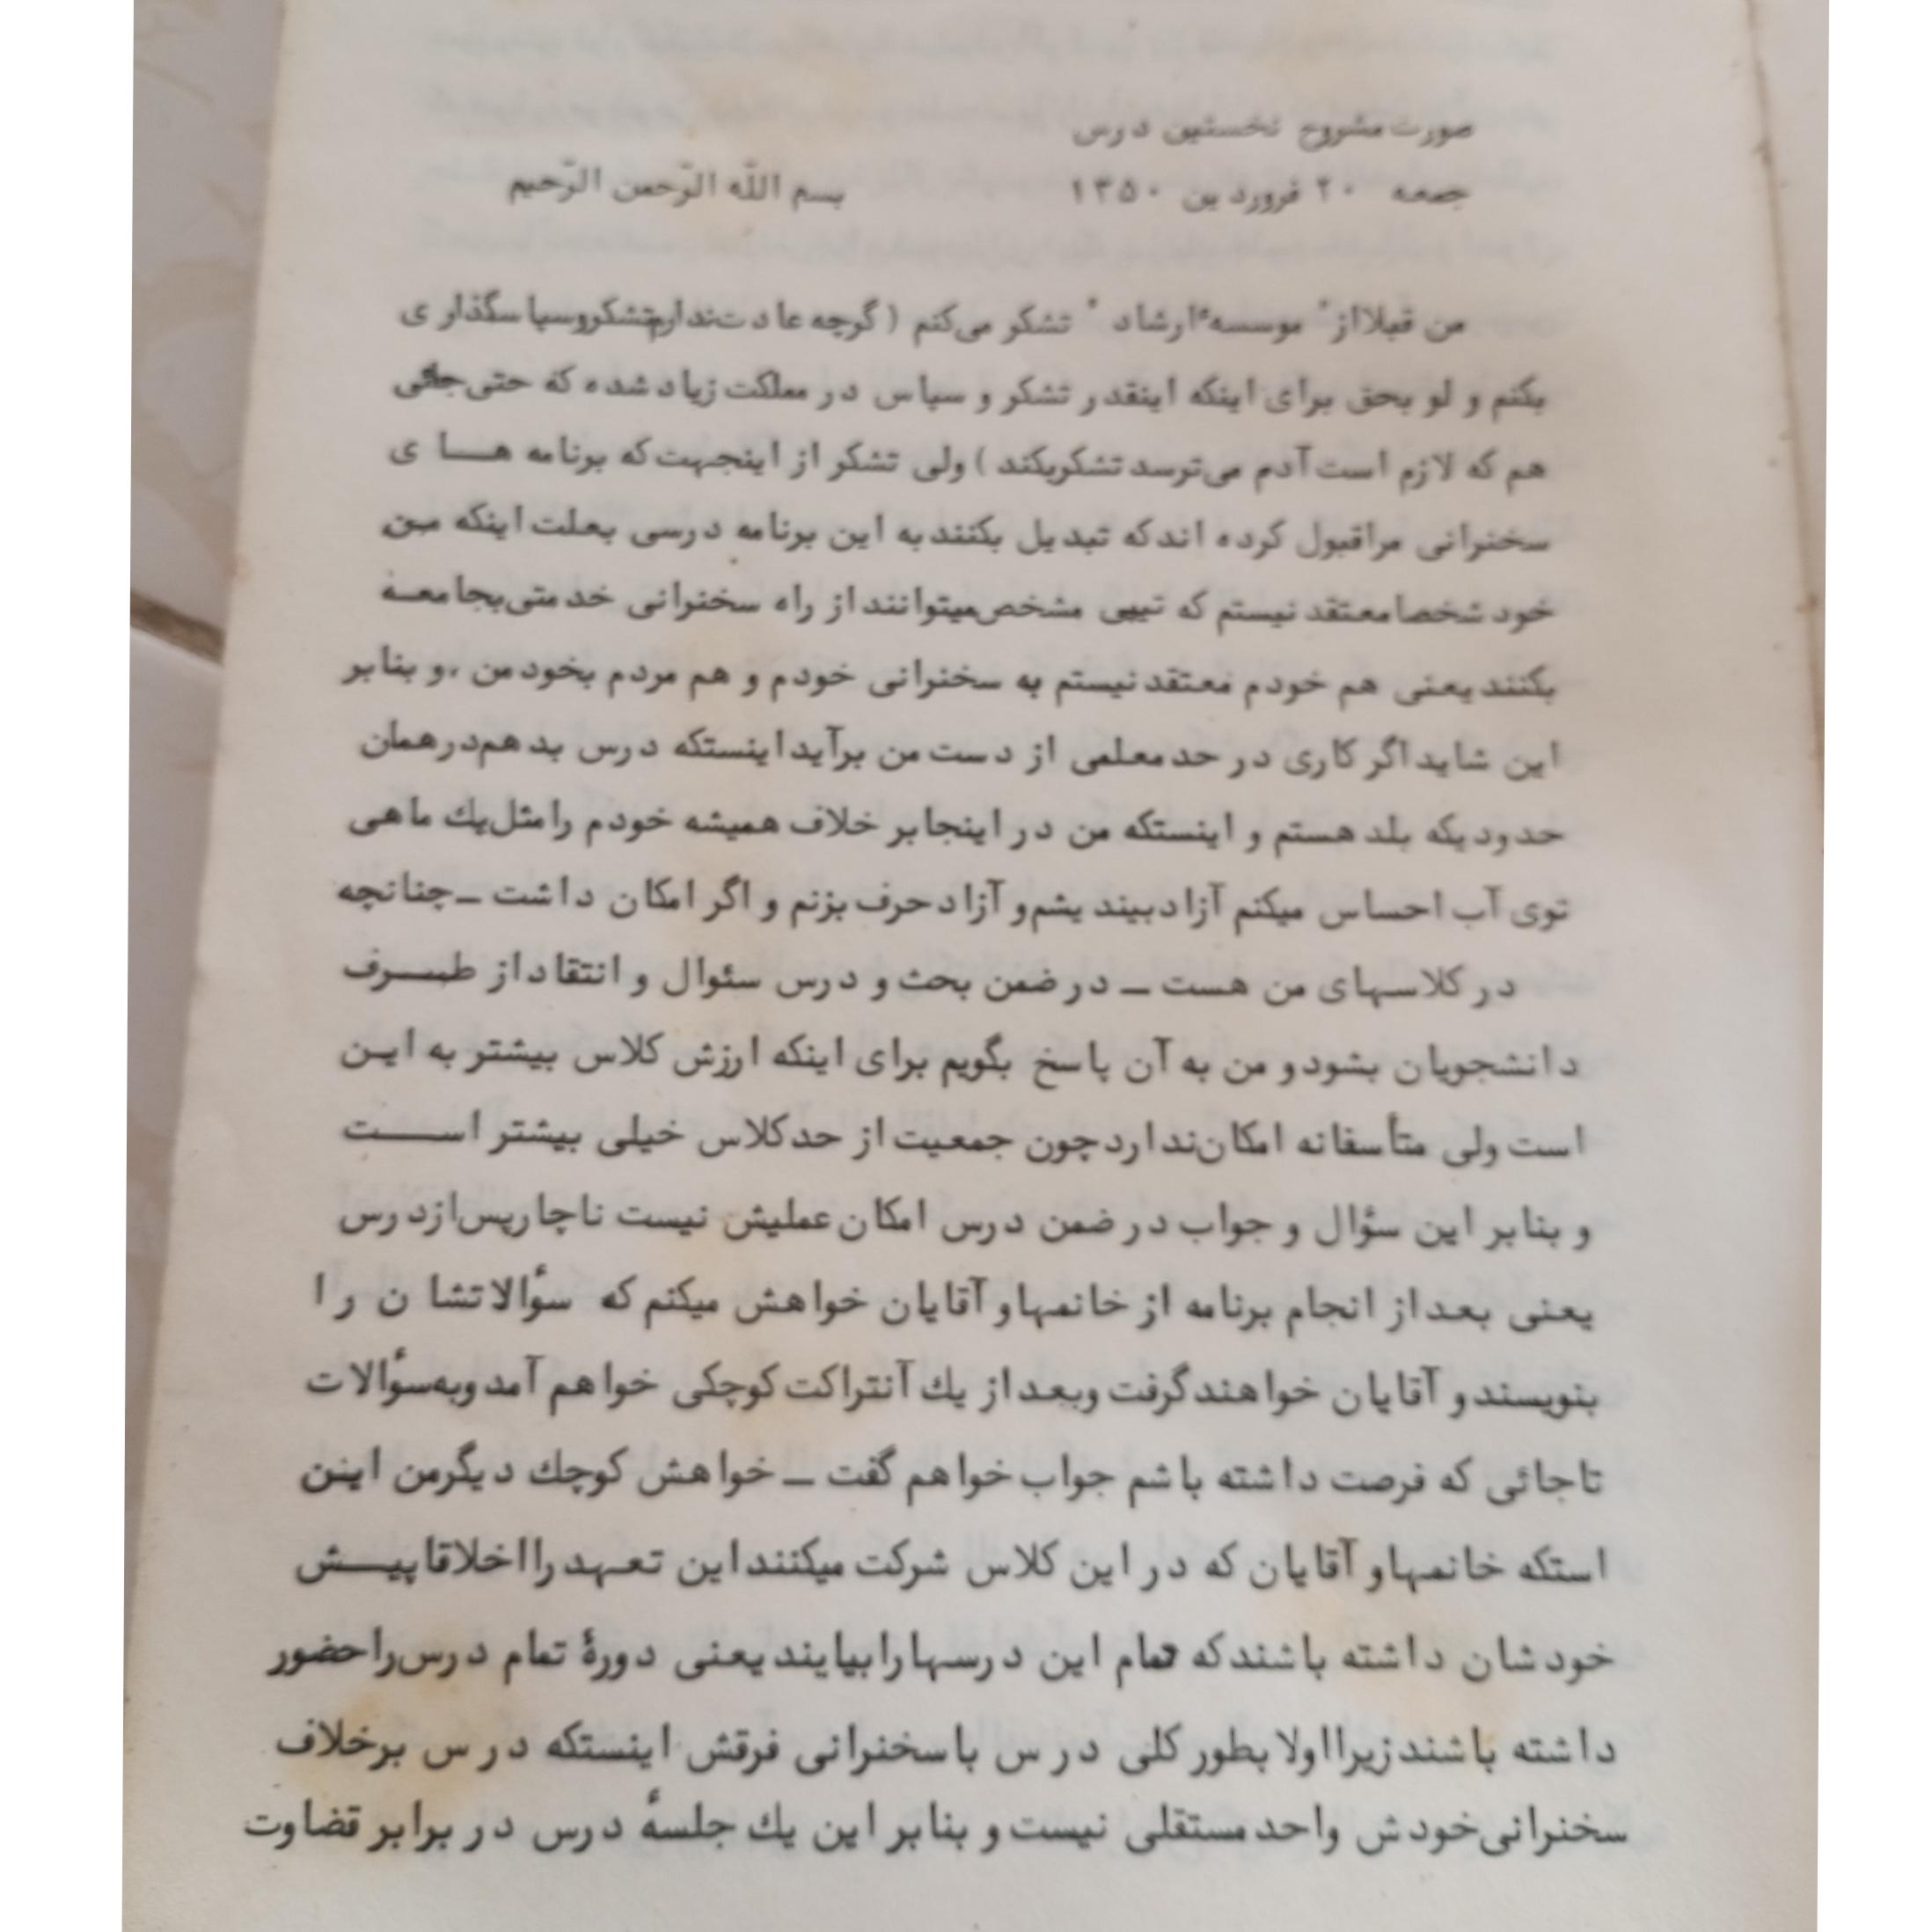 صورت مشروح نخستین درس
جمعه ۲۰ فروردین ۱۳۵۰ بسم اللّه الرّحمن الرّحیم
من قبلا از " موسسهٔ ارشاد " تشکر می‌کنم ( گرچه عادت ندارم تشکر و سپاسگذاری
بکنم و لو بحق برای اینکه اینقدر تشکر و سپاس در مملکت زیاد شده که حتی جائی
هم که لازم است آدم می‌ترسد تشکر بکند ) ولی تشکر از اینجهت که برنامه هـای
سخنرانی مرا قبول کرده اند که تبدیل بکنند به این برنامه درسی بعلت اینکه من
خود شخصا معتقد نیستم که تیپی مشخص میتوانند از راه سخنرانی خدمتی بجامعه
بکنند یعنی هم خودم معتقد نیستم به سخنرانی خودم و هم مردم بخود من . و بنابر
این شاید اگر کاری در حد معلمی از دست من برآید اینستکه درس بدهم در همان
حدودیکه بلد هستم و اینستکه من در اینجا بر خلاف همیشه خودم را مثل یك ماهی
توی آب احساس میکنم آزاد بیندیشم و آزاد حرف بزنم و اگر امکان داشت ـ چنانچه
در کلاسهای من هست ـ در ضمن بحث و درس سئوال و انتقاد از طـرف
دانشجویان بشود و من به آن پاسخ بگویم برای اینکه ارزش کلاس بیشتر به این
است ولی متأسفانه امکان ندارد چون جمعیت از حد کلاس خیلی بیشتر اسـت
و بنابر این سؤال و جواب در ضمن درس امکان عملیش نیست ناچار پس از درس
یعنی بعد از انجام برنامه از خانمها و آقایان خواهش میکنم که سؤالاتشان را
بنویسند و آقایان خواهند گرفت و بعد از یك آنتراکت کوچکی خواهم آمد و به سؤالات
تا جائی که فرصت داشته باشم جواب خواهم گفت ـ خواهش کوچك دیگر من اینن
استکه خانمها و آقایان که در این کلاس شرکت میکنند این تعهد را اخلاقا پیـش
خودشان داشته باشند که تمام این درسها را بیایند یعنی دورهٔ تمام درس را حضور
داشته باشند زیرا اولا بطور کلی درس با سخنرانی فرقش اینستکه درس برخلاف
سخنرانی خودش واحد مستقلی نیست و بنابر این یك جلسهٔ درس در برابر قضاوت